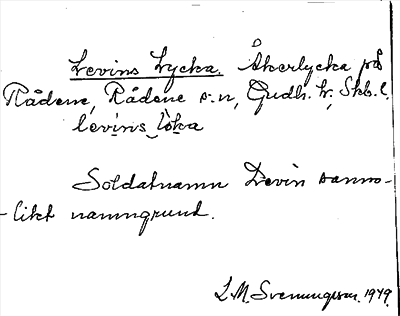 Levins Lycka. Åkerlycka på
Rådene, Rådene s-n, Gudh. hr, Skb. l.
levins löka
Soldatnamn Levin sanno-
-likt namngrund.
L. M. Svenungsson. 1949.